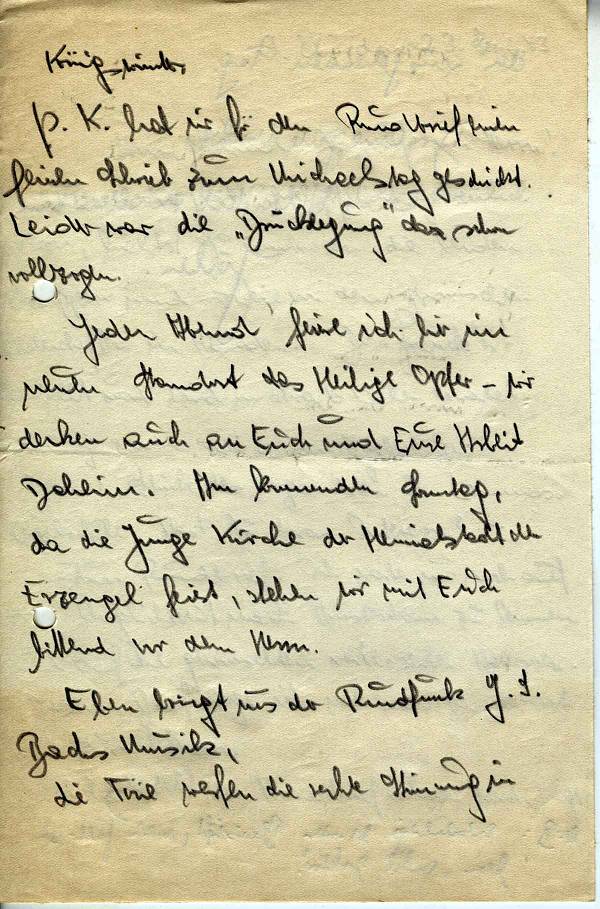 P. K. hat mir für den Rundbrief einen
feinen Schrieb zum Michaelstag geschickt.
Leider war die „Drucklegung" schon
vollzogen.
Jeden Abend feire ich hier im
neuen Standort das Heilige Opfer – wir
denken auch an Euch und Eure Arbeit
daheim. Am kommenden Sonntag,
da die Junge Kirche der Heimatstadt den
Erzengel feiert, stehen wir mit Euch
bittend vor dem Herrn.
Eben bringt uns der Rundfunk J. S.
Bachs Musik,
die Töne werfen die rechte Stimmung in